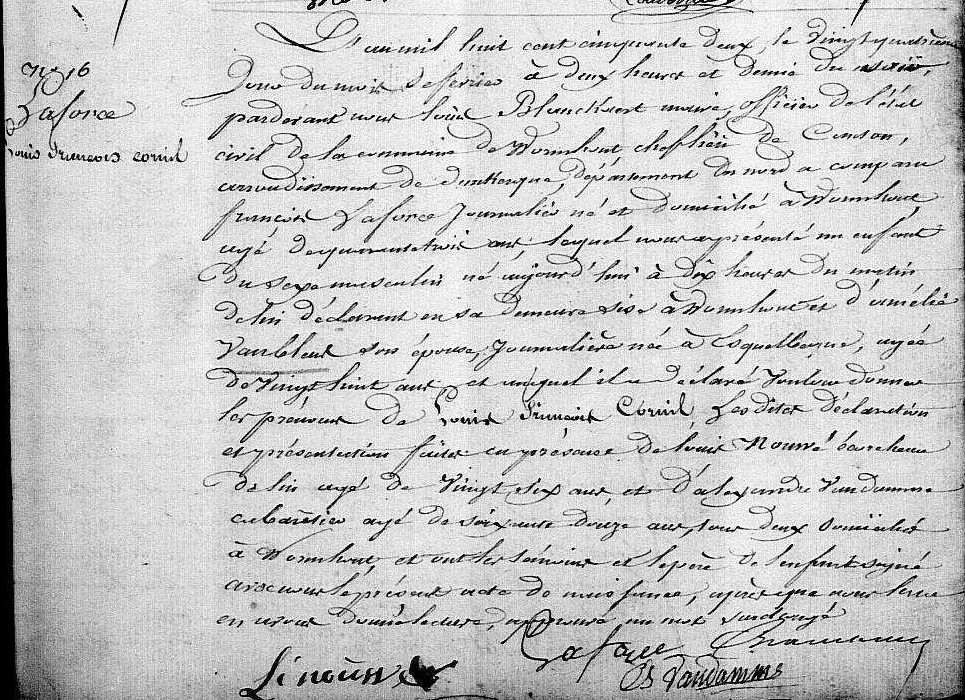 N° 16
Laforce
Louis François Cornil
L'an mil huit cent cinquante deux, le vingt quatrième
Jour du mois de février à deux heures et demie du soir,
pardevant nous Louis Blanckaert maire, officier de l'état
civil de la commune de Wormhout chef lieu de Canton,
arrondissement de Dunkerque, département du nord a comparu
françois Laforce Journalier né et domicilié à Wormhout,
agé de quarante trois ans, lequel nous a présenté un enfant
du sexe masculin né aujourd'hui à dix heures du matin
de lui déclarant en sa demeure sise à Wormhout et d'amélie
son épouse, Journalière née à Esquelbecq, agée
de vingt huit ans et auquel il a déclaré vouloir donner
les prénoms de Louis François Cornil Les dites déclaration
et présentation faites en présence de Louis
de lin agé de vingt six ans, et d'alexandre Vandamme
cabaretier agé de soixante douze ans, tous deux domiciliés
à Wormhout et ont les témoins et le père de l'enfant signé
avec nous le présent acte de naissance, après que nous leur
en avons donné lecture, approuvé un mot surchargé
Laforce
Vandamme